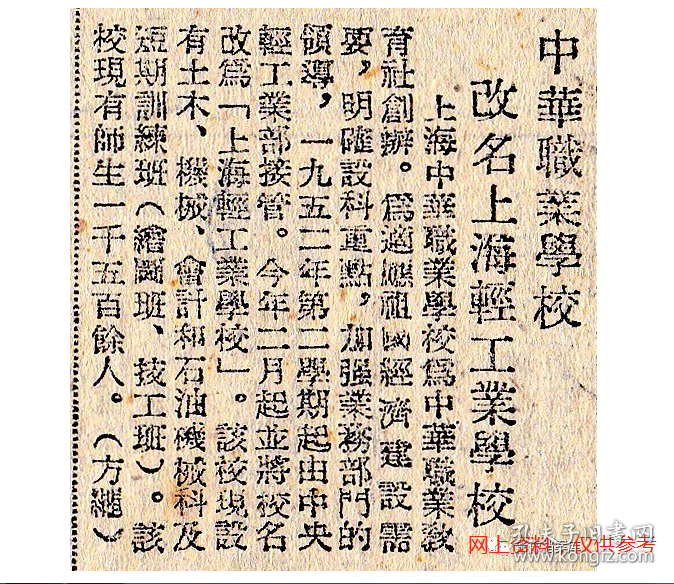 中華職業學校
改名上海輕工業學校
上海中華職業學校爲中華職業教
育社創辦。爲適應祖國經濟建設需
要，明確設科重點，加强業務部門的
領導，一九五二年第二學期起由中央
輕工業部接管。今年二月起並將校名
改爲「上海輕工業學校」。該校現設
有土木、機械、會計和石油機械科及
短期訓練班（繪圖班、技工班）。該
校現有師生一千五百餘人。（方繼）
孔夫子旧书网
网上资料 仅供参考